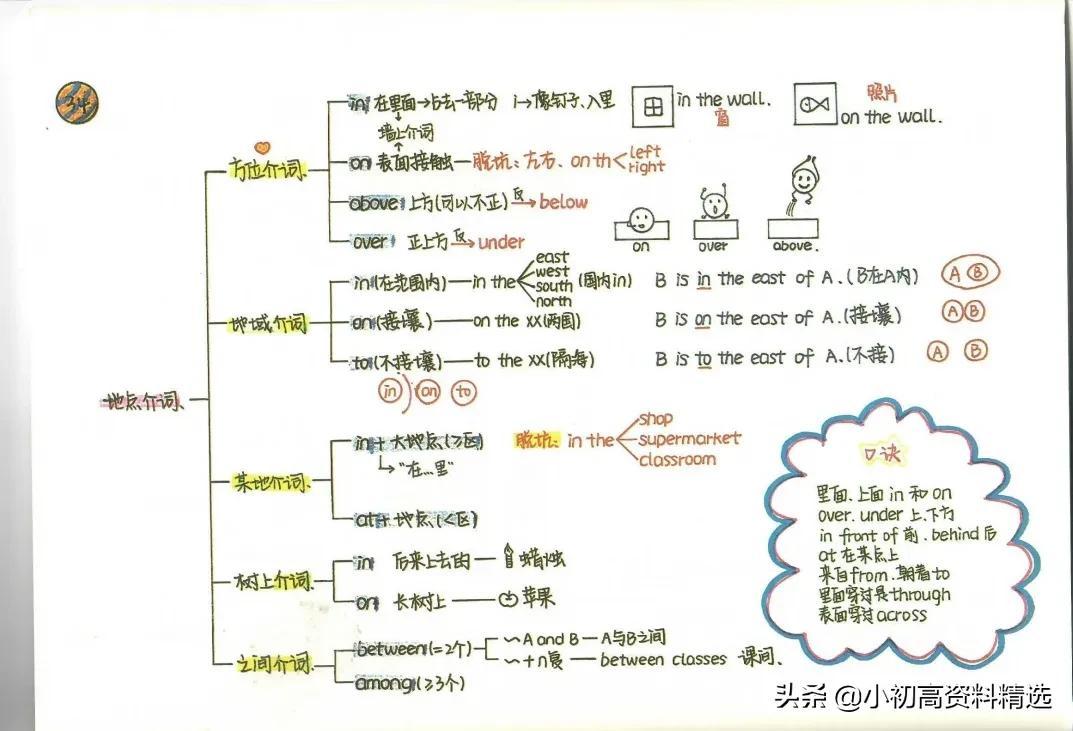 34
in 在里面→占去一部分 i→像钉子、入里
in the wall.
窗
照片
on the wall.
墙上介词
方位介词
on 表面接触—脱坑:左右、on th< left
right
above 上方(可以不正) 反→below
over 正上方 反→under
on
over
above.
地域介词
in(在范围内)—in the
east
west
south
north
(国内in)
B is in the east of A.(B在A内)
A B
on(接壤)—on the XX(两国)
B is on the east of A.(接壤)
A B
to(不接壤)—to the XX(隔海)
B is to the east of A.(不接)
A B
in on to
地点介词
某地介词
in+大地点(≥区)
"在...里"
脱坑: in the
shop
supermarket
classroom
at+地点(<区)
树上介词
in 后来上去的—蜡烛
on 长树上—苹果
之间介词
between(=2个)
~A and B—A与B之间
~+n复—between classes 课间、
among(≥3个)
口诀
里面、上面in和on
over、under上、下方
in front of前、behind后
at在某点上
来自from、朝着to
里面穿过是through
表面穿过across
头条 @小初高资料精选